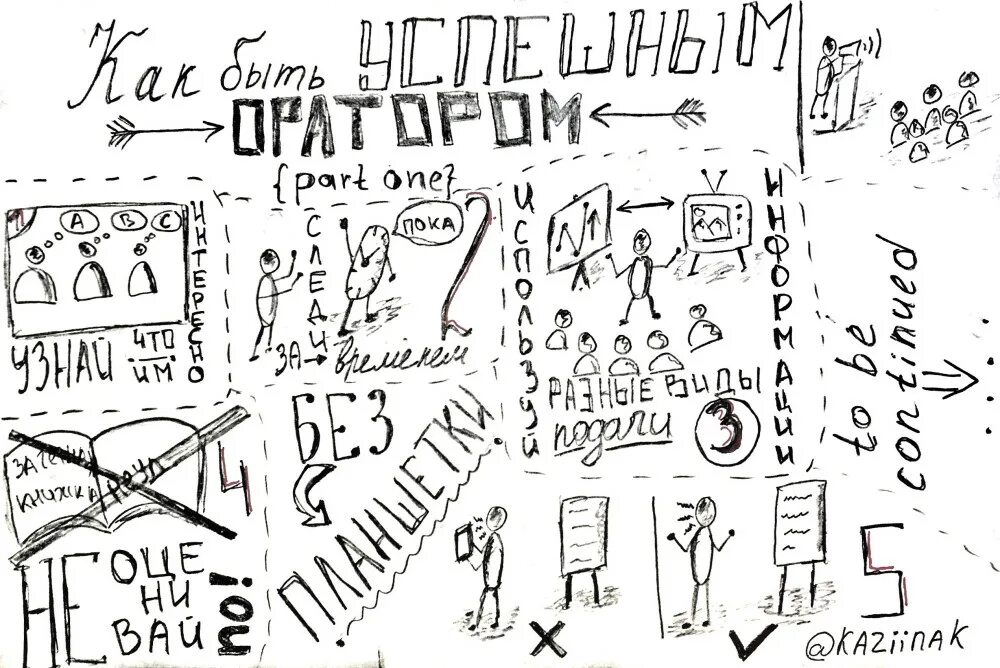 Как быть УСПЕШНЫМ
ОРАТОРОМ
{part one}
1
A B C
УЗНАЙ ЧТО
ИМ
ИНТЕРЕСНО
2
ПОКА
СЛЕДИ
ЗА → временем
ИСПОЛЬЗУЙ
РАЗНЫЕ ВИДЫ
подачи
ИНФОРМАЦИИ
3
4
КНИЖКА
НЕ ОЦЕ
НИ
ВАЙ
ПО!
БЕЗ
ПЛАНШЕТКИ
5
to be
continued
...
@KAZiiNAK